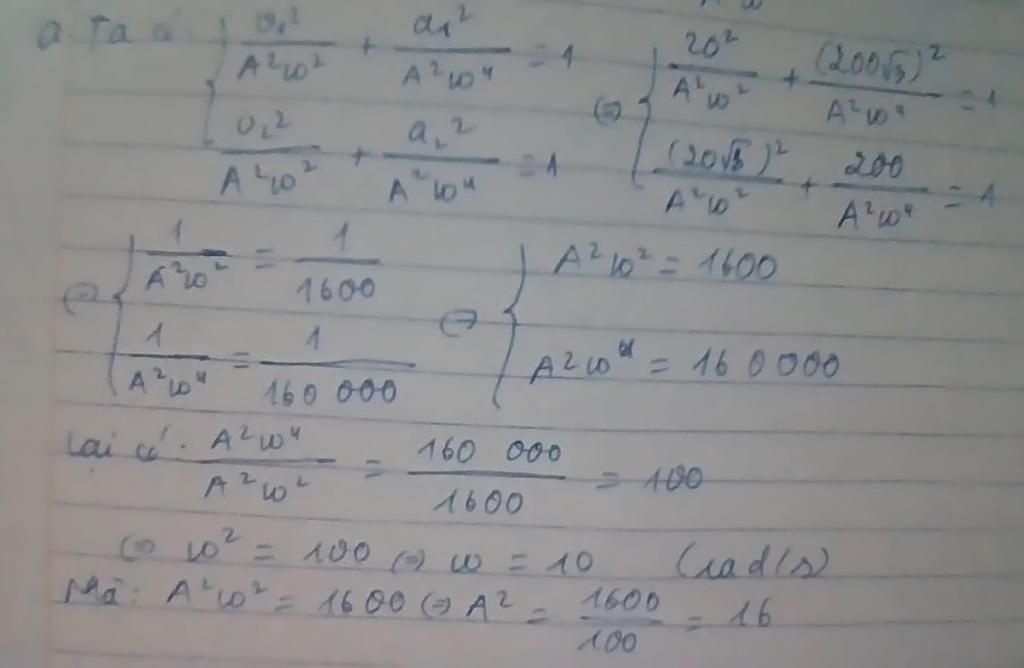 a. Ta có { v₁²/A²ω² + a₁²/A²ω⁴ = 1 (=) { 20²/A²ω² + (200√3)²/A²ω⁴ = 1
v₂²/A²ω² + a₂²/A²ω⁴ = 1 (20√3)²/A²ω² + 200/A²ω⁴ = 1
(=) { 1/A²ω² = 1/1600 (=) { A²ω² = 1600
1/A²ω⁴ = 1/160 000 A²ω⁴ = 160 000
Lại có: A²ω⁴/A²ω² = 160 000/1600 = 100
(=) ω² = 100 (=) ω = 10 (rad/s)
Mà: A²ω² = 1600 (=) A² = 1600/100 = 16